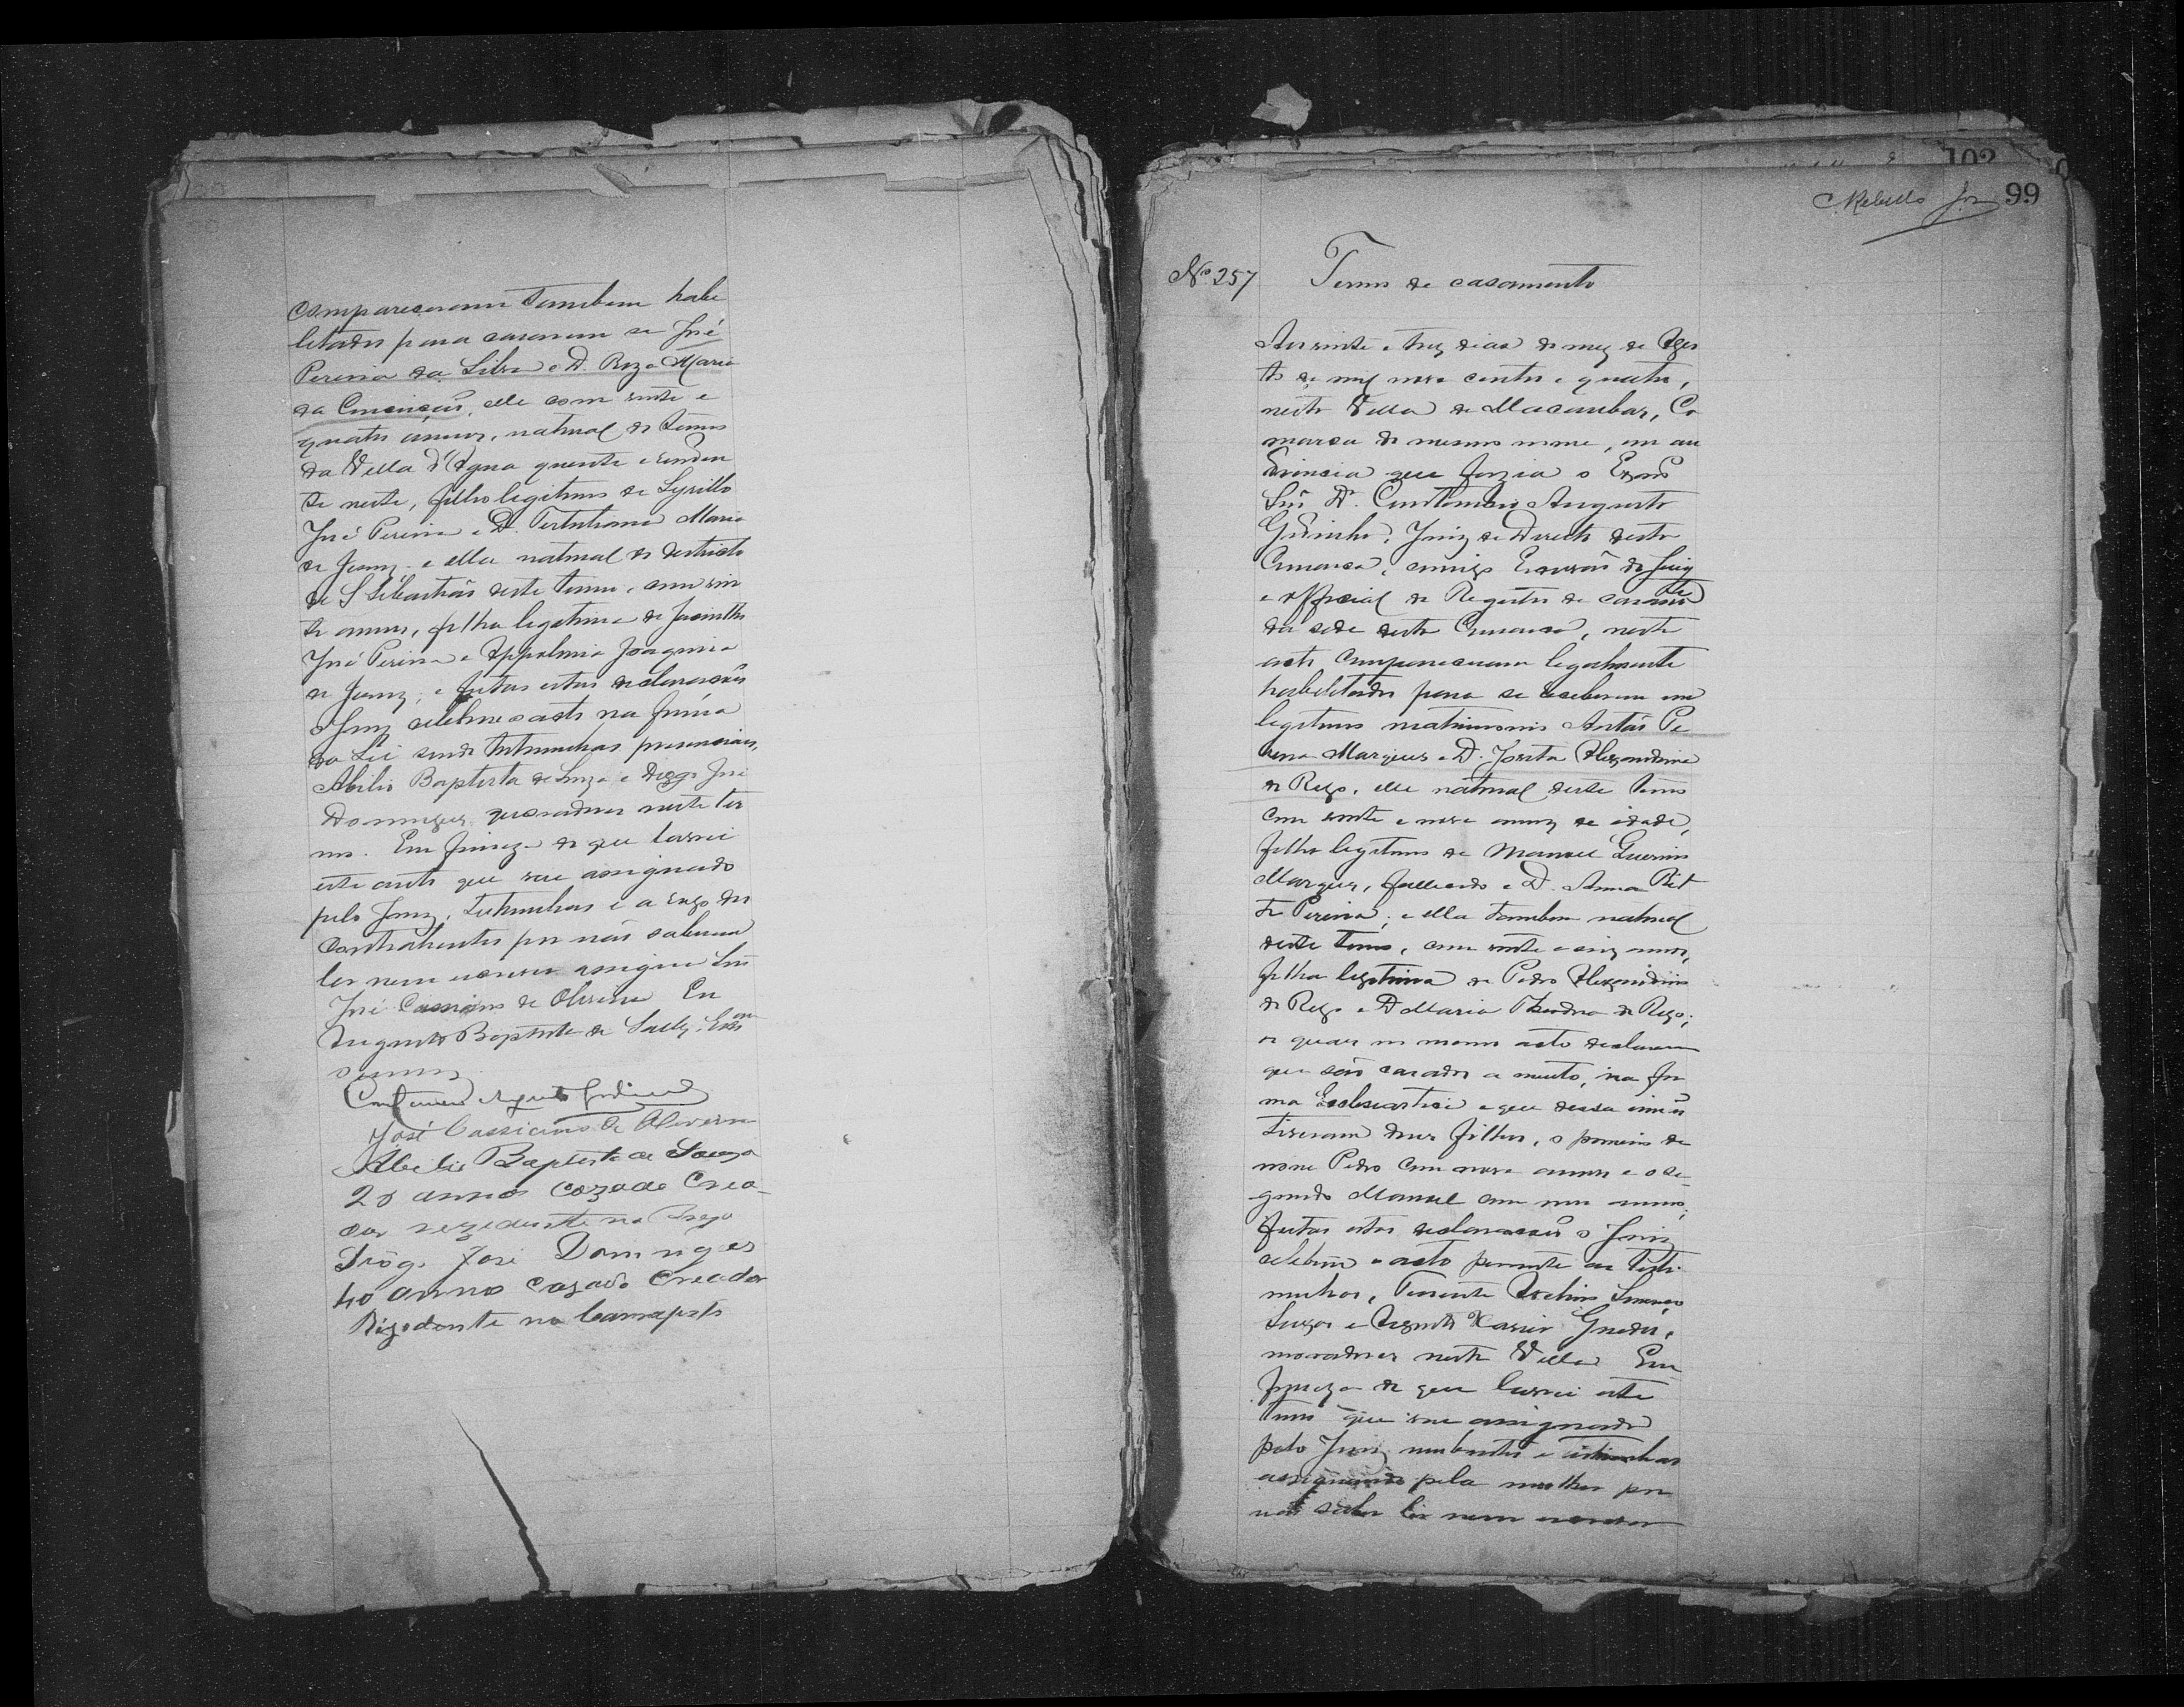 compareceram tambem habe
letados para casarem se José
Pereira da Silva e D. Roza Maria
da Conceição, elle com vinte e
quatro annos, natural do termo
da Villa d'Agua quente e residen
te neste, filho legitimo de Cyrillo
José Pereira e D. Tertuliana Maria
de Jesus, e ella natural do destricto
de S Sebastião deste termo, com vin
te annos, filha legitima de Jacintho
José Pereira e Appolonia Joaquina
de Jesus; e feitas estas declarações
o Juiz celebrou o acto na forma
da Lei sendo testemunhas presenciaes,
Abilio Baptista de Souza e Diogo José
Domingues, moradores neste ter
mo. Em firmeza do que lavrei
este auto que vae assignado
pelo Juiz, testemunhas e a rogo dos
contrahentes por não saberem
ler nem escrever assigna Snr
José Cassiano de Oliveira Eu
Augusto Baptista de Escrivão
o escrevi
Augusto
José Cassiano de Oliveira
Abilio Baptista de Souza
20 annos Cazado Crea
dor rezedente na
Diogo José Domingues
40 annos Cazado Creador
Rezedente na
102
Rebello Jor 99
No 257 Termo de casamento
Aos vinte e trez dias do mez de Agos
to de mil nove centos e quatro,
nesta Villa de Macaubas, Co
marca do mesmo nome, em au
diencia que fazia o Exmo
Snr Dr. Augusto
Godinho, Juiz de Direito desta
Comarca, comigo Escrivão do Juiz
e official do Registro de casamto
da sede desta Comarca, neste
acto compareceram legalmente
habelitados para se receberem em
legitimo matrimonio Antão Pe
reira Marques e D. Jovita Alexandrina
do Rego, elle natural deste termo
com vinte e nove annos de idade,
filho legitimo de Manuel
Marques, fallecido e D. Anna Rit
ta Pereira; e ella tambem natural
deste termo, com vinte e seis annos,
filha legitima de Pedro Alexandrino
do Rego e D Maria Theodora do Rego;
os quaes no mesmo acto declararam
que são casados a muito, na for
ma Ecclesiastica e que dessa união
tiveram dous filhos, o primeiro de
nome Pedro com nove annos e o se
gundo Manuel com annos;
feitas estas declarações o Juiz
celebrou o acto perante as teste
munhas, Tenente Avelino
Souza e Augusto Xavier Guedes,
moradores nesta Villa Em
firmeza do que lavrei este
termo que vae assignado
pelo Juiz, nubentes e testemunhas
assignando pela mulher por
não saber ler nem escrever